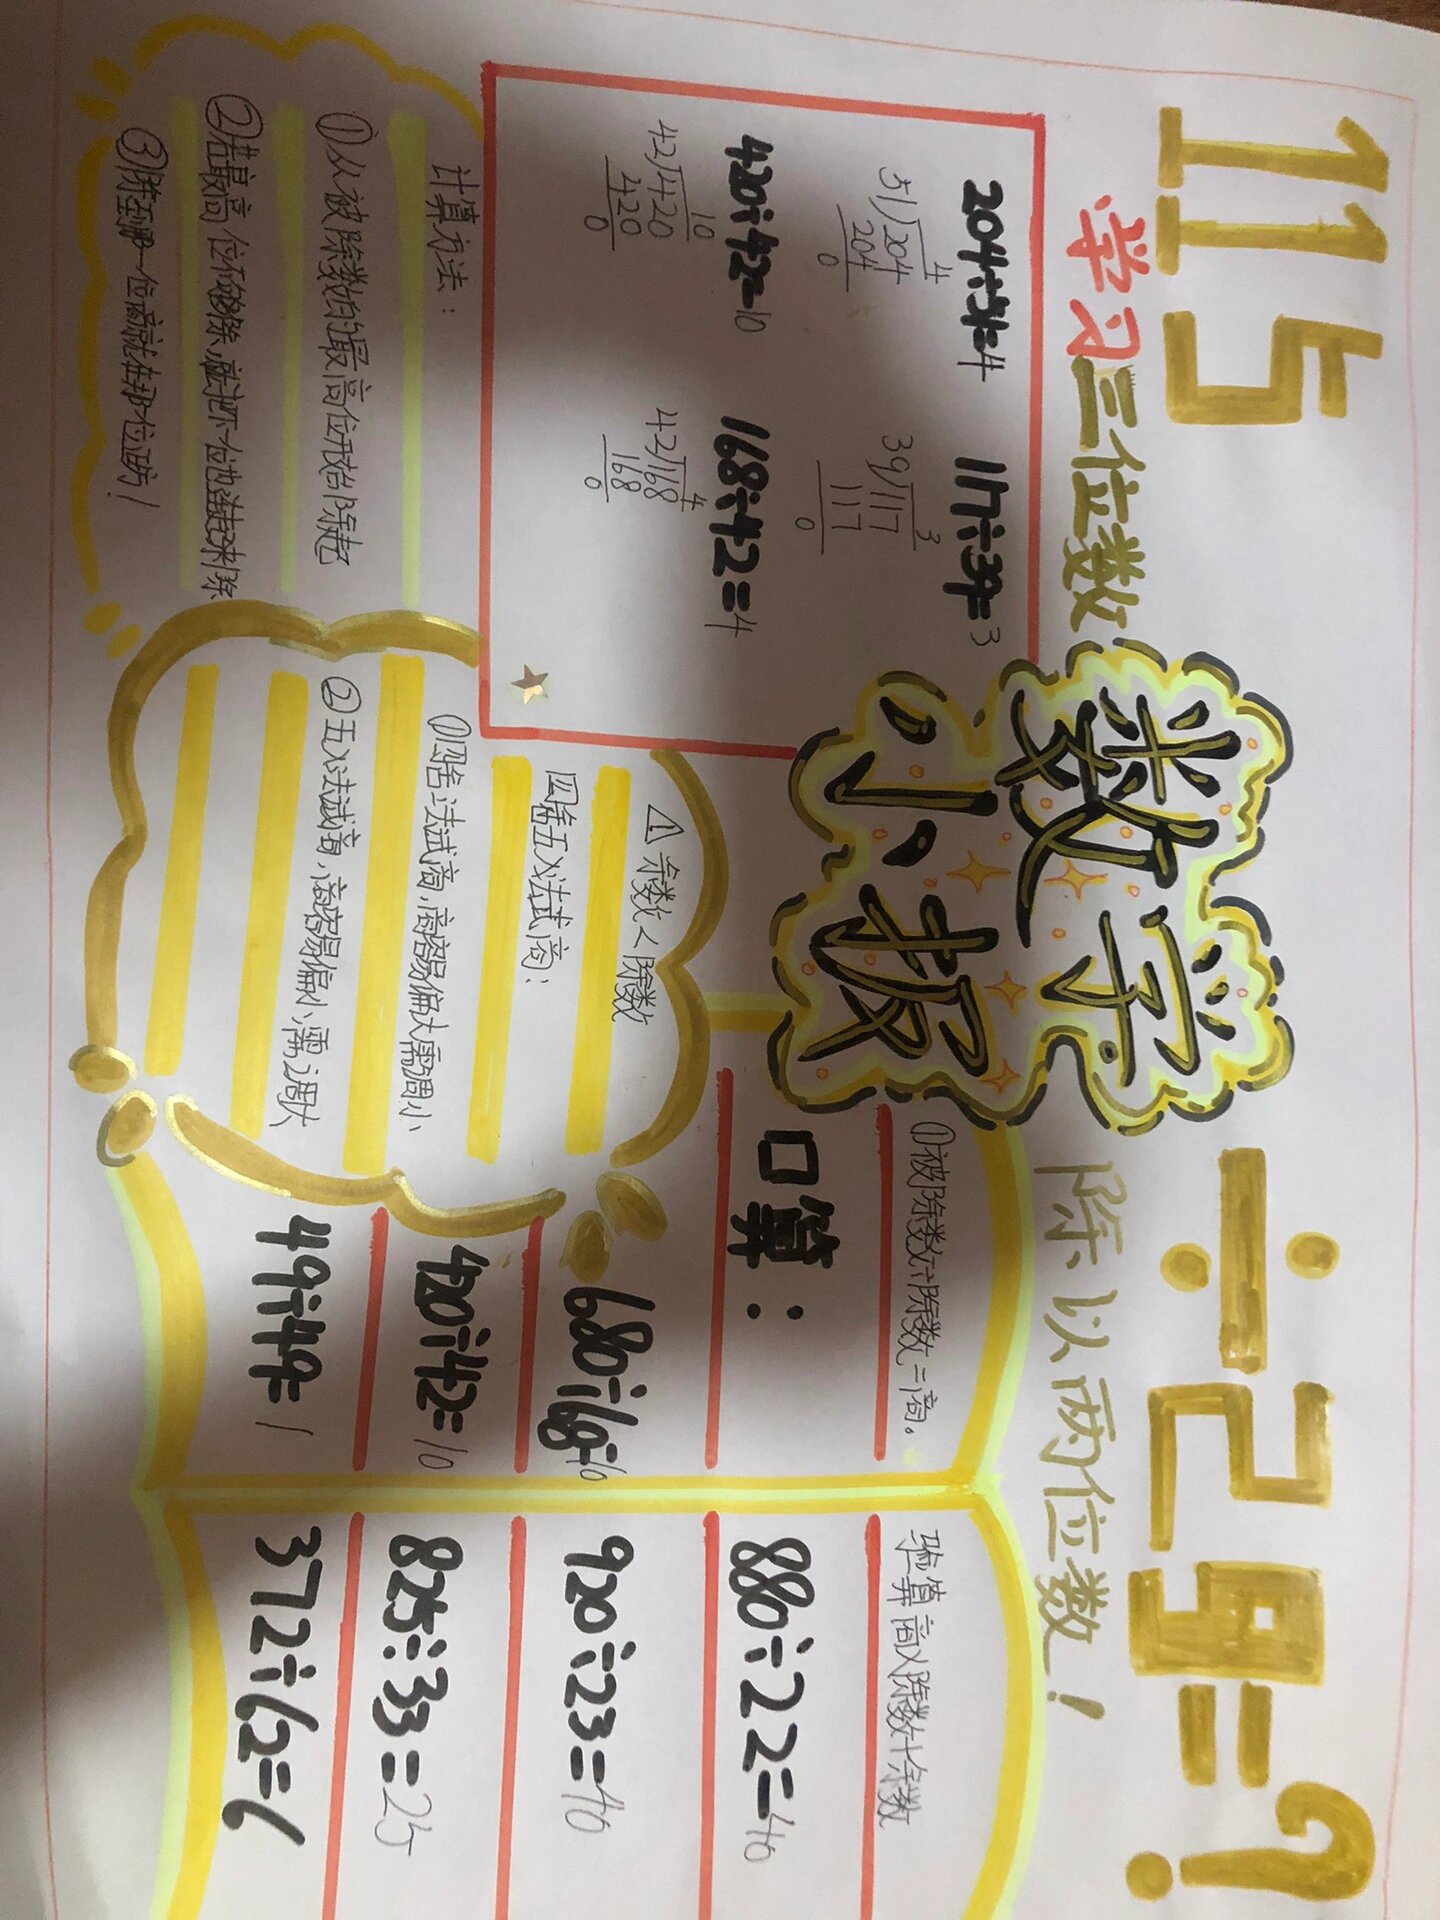 115
÷29=?
学习三位数
除以两位数！
数学
小报
204÷51=4
117÷39=3
4
51)204
204
0
3
39)117
117
0
420÷42=10
168÷42=4
10
42)420
420
0
4
42)168
168
0
计算方法：
①从被除数的最高位开始除起
②若最高位不够除，就把下一位连起来除
③除到哪一位商就在那一位上的！
⚠余数<除数
四舍五入法试商：
①四舍法试商，商容易偏大需调小
②五入法试商，商容易偏小，需调大
①被除数÷除数=商。
口算：
680÷68=10
420÷42=10
49÷49=1
验算商×除数+余数
880÷22=40
920÷23=40
825÷33=25
372÷62=6